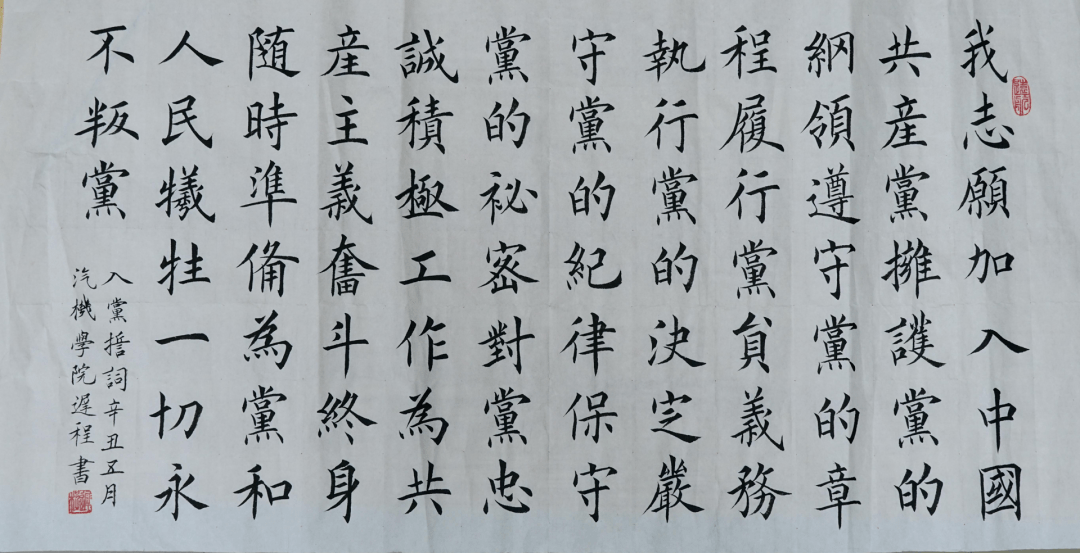 我志願加入中國
共産黨擁護黨的
綱領遵守黨的章
程履行黨員義務
執行黨的決定嚴
守黨的紀律保守
黨的祕密對黨忠
誠積極工作為共
産主義奮斗終身
隨時準備為黨和
人民犧牲一切永
不叛黨
入黨誓詞辛丑五月
汽機學院遲程書